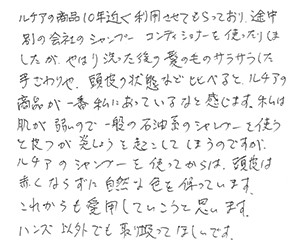 ルチアの商品10年近く利用させてもらっており、途中
別の会社のシャンプー コンディショナーを使ったりしま
したが、やはり洗った後の髪の毛のサラサラした
手ざわりや、頭皮の状態など比べると、ルチアの
商品が一番私にあっているなと感じます。私は
肌が弱いので一般の石油系のシャンプーを使う
と皮フが炎しょうを起こしてしまうのですが、
ルチアのシャンプーを使ってからは、頭皮は
赤くならずに自然な色を保っています。
これからも愛用していこうと思います。
ハンズ以外でも取り扱ってほしいです。